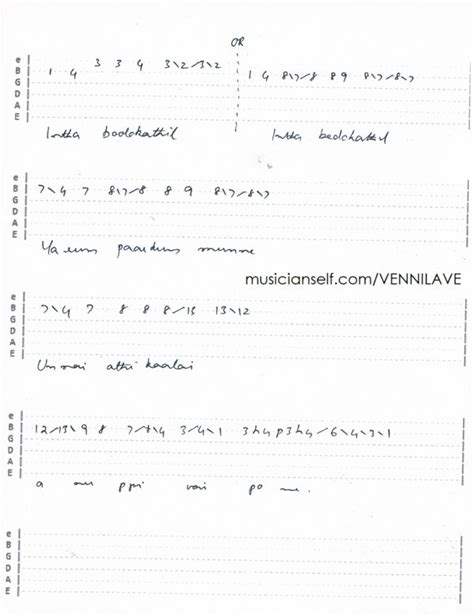 OR
e
B 1 4 3 3 4 3\2/3\2 1 4 8\7/8 8 9 8\7/8\7
G
D
A
E
Intha boolokathil Intha boolokathil
e
B 7\4 7 8\7/8 8 9 8\7/8\7
G
D
A
E
Yaarum paarkum munne
musicianself.com/VENNILAVE
e
B 7\4 7 8 8 8/13 13\12
G
D
A
E
Unnai athi kaalai
e
B 12/13\9 8 7/8\4 3/4\1 3h4p3h4/6\4\3\1
G
D
A
E
a nu ppi vai po me.
e
B
G
D
A
E